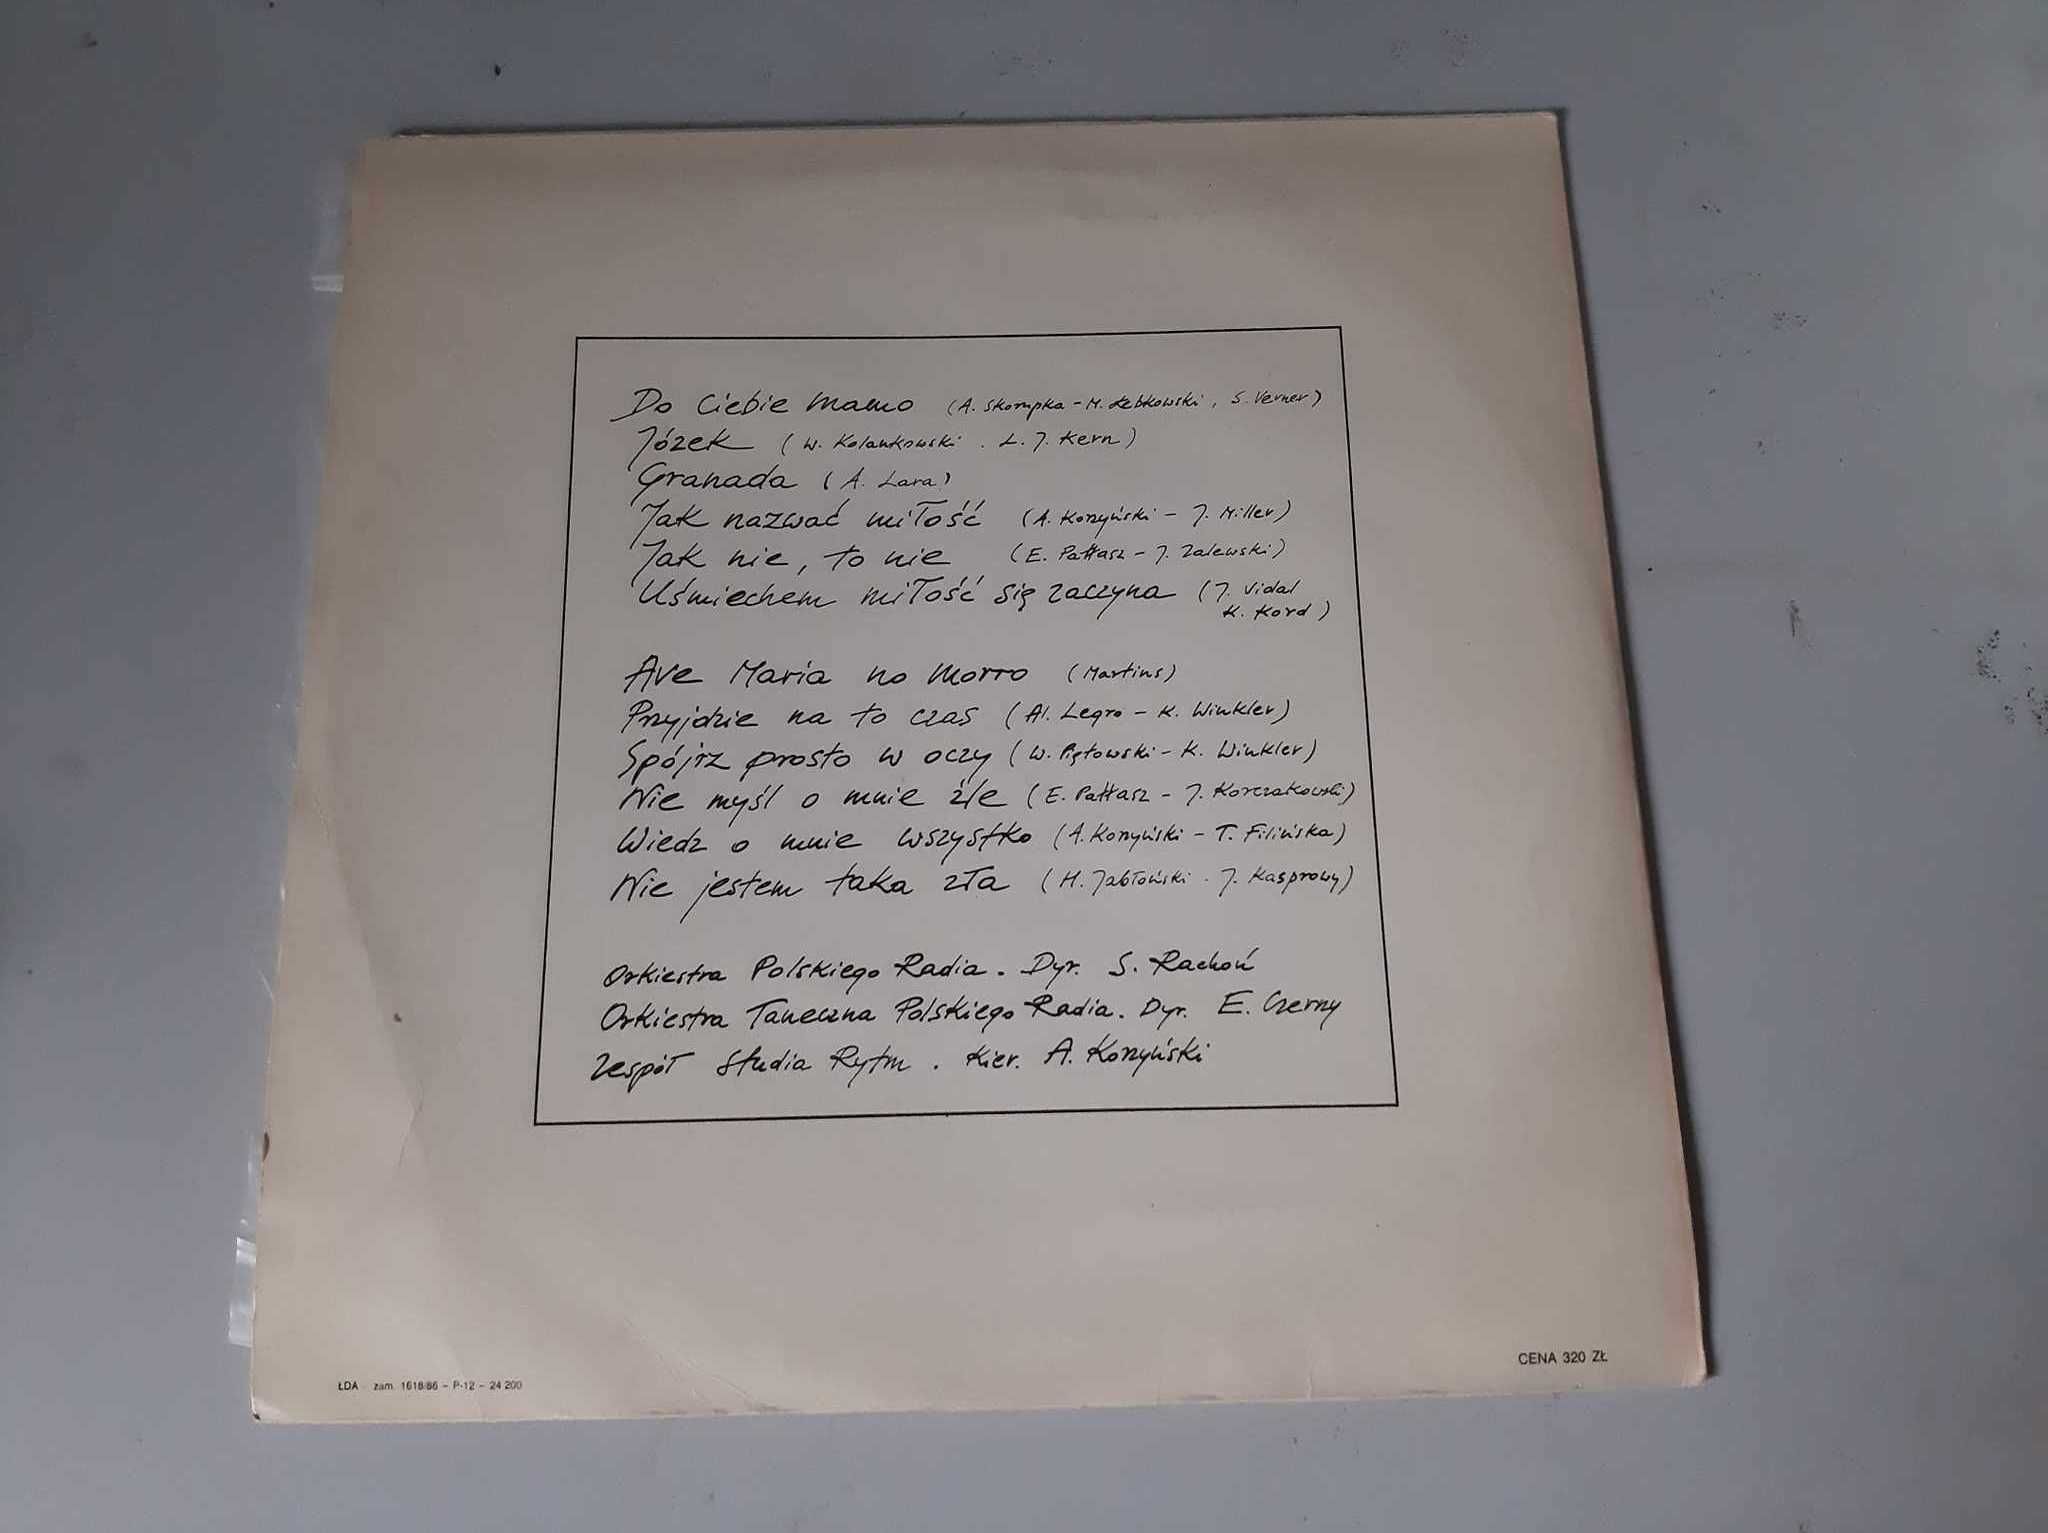 Do Ciebie Mamo (A. Skorupka - M. Łebkowski, S. Verner)
Józek (W. Kolankowski . L. J. Kern)
Granada (A. Lara)
Jak nazwać miłość (A. Korzyński - J. Miller)
Jak nie, to nie (E. Pałłasz - J. Zalewski)
Uśmiechem miłość się zaczyna (J. Vidal
K. Kord)
Ave Maria no Morro (Martins)
Przyjdzie na to czas (Al. Legro - K. Winkler)
Spójrz prosto w oczy (W. Piętowski - K. Winkler)
Nie myśl o mnie źle (E. Pałłasz - J. Korczakowski)
Wiedz o mnie wszystko (A. Korzyński - T. Filińska)
Nie jestem taka zła (H. Jabłoński . J. Kasprowy)
Orkiestra Polskiego Radia. Dyr. S. Rachoń
Orkiestra Taneczna Polskiego Radia. Dyr. E. Czerny
Zespół Studia Rytm. Kier. A. Korzyński
CENA 320 ZŁ
ŁDA zam. 1618/86 – P-12 – 24 200